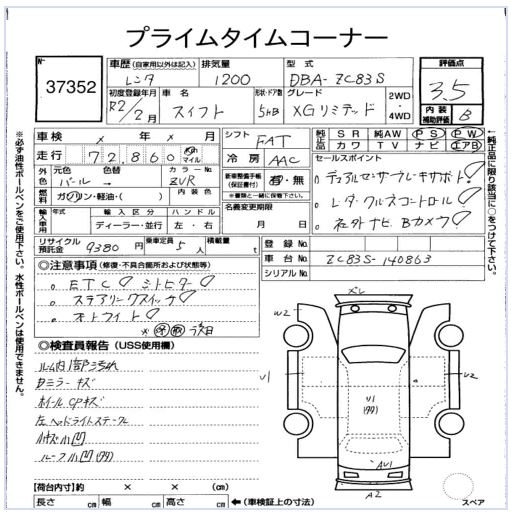 プライムタイムコーナー
N-
37352
車歴 (自家用以外は記入)
レンタ
排気量
1200
型式
DBA-ZC83S
評価点
3.5
内装補助評価 B
初度登録年月
R2/2月
車名
スイフト
形状・ドア数
5HB
グレード
XGリミテッド
2WD・4WD
車検 × 年 × 月
走行 72,860 km マイル
シフト
FAT
冷房 AAC
純正品 SR 純AW PS PW
カワ TV ナビ エアB
外色 元色 色替 カラーNo
パール→ ZVR
燃料 ガソリン・軽油・( ) 内装色
新車整備手帳(保証書付) 有・無
※書類と一緒に保管下さい。
セールスポイント
デュアルセンサーブレーキサポート
レーダークルーズコントロール
社外ナビ Bカメラ
輸入車用 年式 輸入区分 ハンドル
ディーラー・並行 左・右
名義変更期限
月 日
リサイクル預託金 9380円 乗車定員 5人 積載量 t
登録No
車台No ZC83S-140863
シリアルNo
◎注意事項 (修復・不具合箇所および状態等)
ETC シートヒーター
ステアリングスイッチ
オートライト
◎検査員報告 (USS使用欄)
Dミラーキズ
ホイールCPキズ
左ヘッドライトステークル
小キズ小凹
ルーフ小凹
ズレ
W2
U1
U2
U1
AU1
A2
スペア
【荷台内寸】約 × × (cm)
長さ cm 幅 cm 高さ cm ←(車検証上の寸法)
※必ず油性ボールペンをご使用下さい。水性ボールペンは使用できません。
←純正品に限り該当に○をつけて下さい。